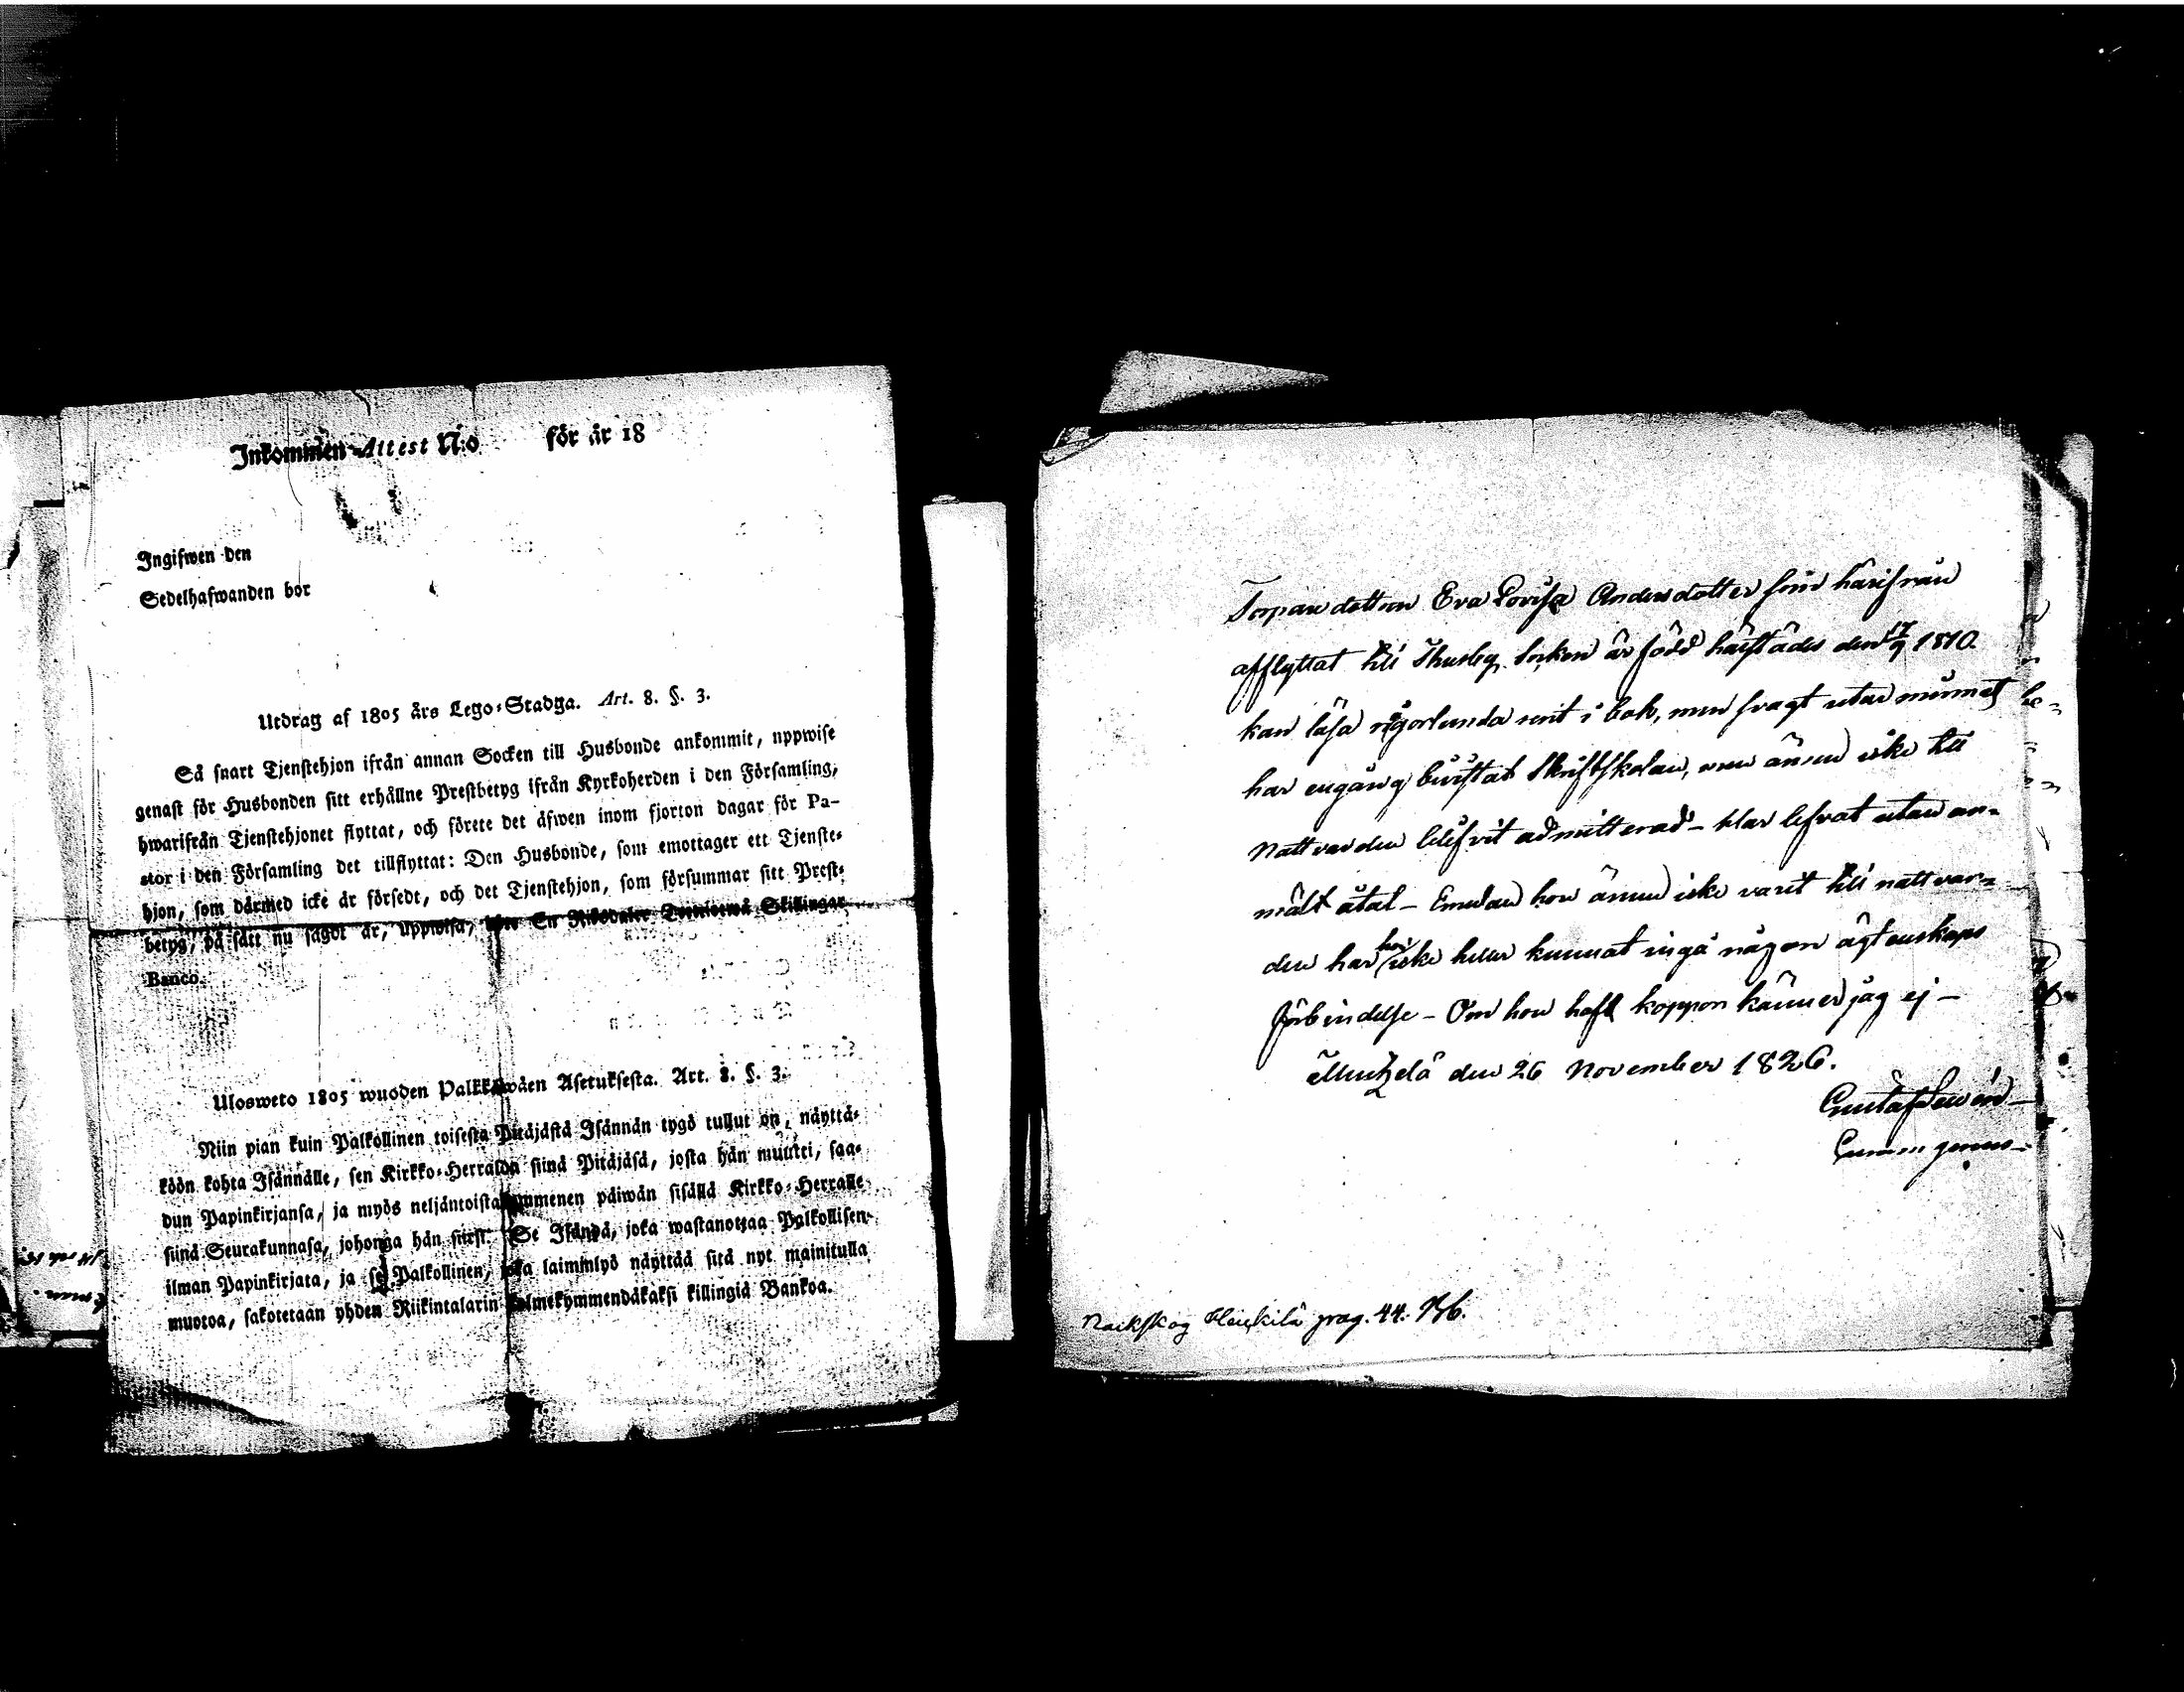 Inkommen Attest N:o för år 18
Ingifwen den
Sedelhafwanden bor
Utdrag af 1805 års Lego-Stadga. Art. 8. §. 3.
Så snart Tjenstehjon ifrån annan Socken till Husbonde ankommit, uppwise
genast för Husbonden sitt erhållne Prestbetyg ifrån Kyrkoherden i den Församling,
hwarifrån Tjenstehjonet flyttat, och förete det äfwen inom fjorton dagar för Pa-
stor i den Församling det tillflyttat: Den Husbonde, som emottager ett Tjenste-
hjon, som därmed icke är försedt, och det Tjenstehjon, som försummar sitt Prest-
betyg, på sätt nu sagdt är, uppwisa, böte En Riksdaler Trettiotwå Skillingar
Banco.
Ulosweto 1805 wuoden Palkkawäen Asetuksesta. Art. 8. §. 3.
Niin pian kuin Palkollinen toisesta Pitäjästä Isännän tygö tullut on, näyttä-
köön kohta Isännälle, sen Kirkko-Herralda siinä Pitäjäsä, josta hän muutti, saa-
dun Papinkirjansa, ja myös neljäntoistakymmenen päiwän sisällä Kirkko-Herralle
siinä Seurakunnasa, johonga hän siirsi. Se Isändä, joka wastanottaa Palkollisen
ilman Papinkirjata, ja se Palkollinen, joka laiminlyö näyttää sitä nyt mainitulla
muotoa, sakotetaan yhden Riikintalarin kolmekymmendäkaksi killingiä Bankoa.
Torpare dottren Eva Lovisa Andersdotter som härifrån
afflyttat till Thusby Socken är född härstädes den 17/9 1810.
kan läsa någorlunda rent i bok, men svagt utur minnet
har engång bivistat Skriftskolan, men ännu icke till
Nattvarden blifvit admitterad – Har lefvat utan an-
mält åtal – Emedan hon ännu icke varit till nattvar-
den har hon icke heller kunnat ingå någon ägtenskaps
förbindelse – Om hon haft koppor känner jag ej –
den 26 November 1826.
pag. 44.